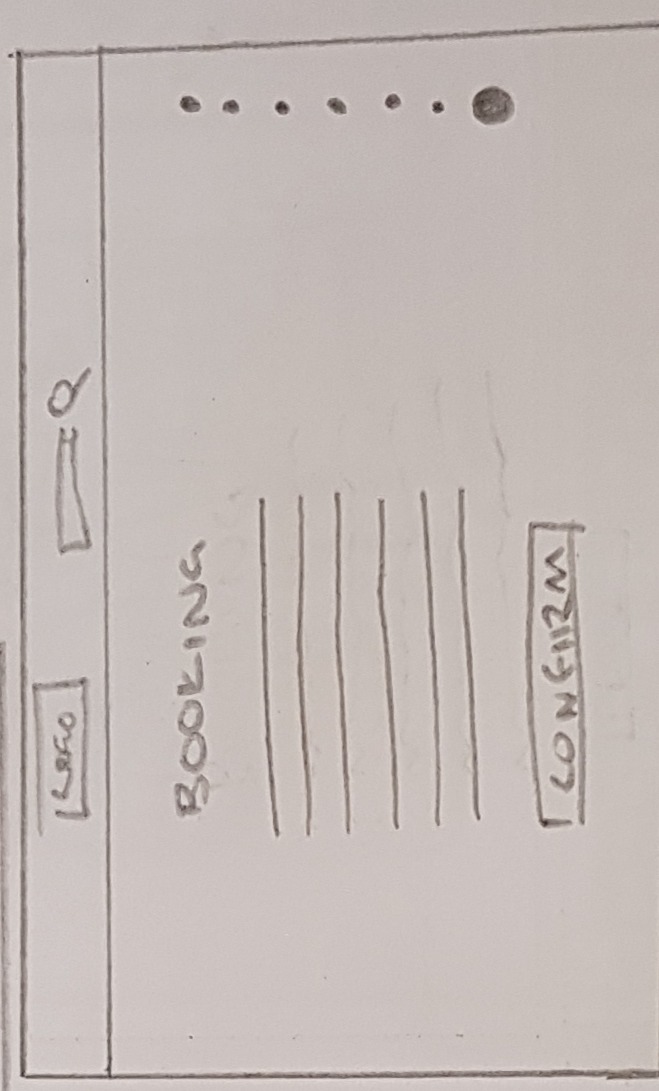 LOGO
BOOKING
CONFIRM